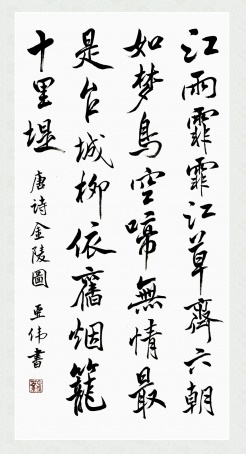 江雨霏霏江草齊六朝
如梦鳥空啼無情最
是台城柳依舊烟籠
十里堤
唐詩金陵圖 亚伟書